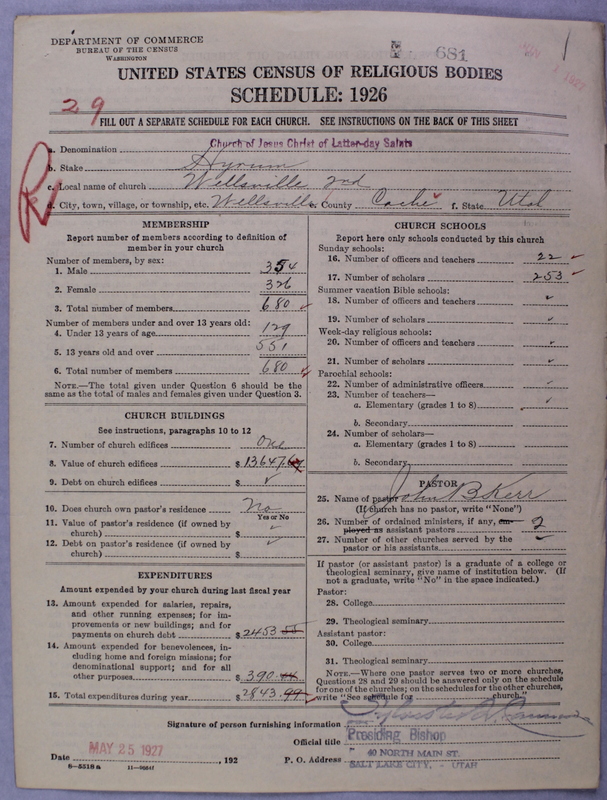 DEPARTMENT OF COMMERCE
BUREAU OF THE CENSUS
WASHINGTON
681
1927
UNITED STATES CENSUS OF RELIGIOUS BODIES
SCHEDULE: 1926
29
FILL OUT A SEPARATE SCHEDULE FOR EACH CHURCH. SEE INSTRUCTIONS ON THE BACK OF THIS SHEET
a. Denomination Church of Jesus Christ of Latter-day Saints
b. Stake Hyrum
c. Local name of church Wellsville 2nd
d. City, town, village, or township, etc. Wellsville e. County Cache f. State Utah
R
MEMBERSHIP
Report number of members according to definition of
member in your church
Number of members, by sex:
1. Male 354
2. Female 326
3. Total number of members 680
Number of members under and over 13 years old:
4. Under 13 years of age 129
5. 13 years old and over 551
6. Total number of members 680
NOTE.—The total given under Question 6 should be the
same as the total of males and females given under Question 3.
CHURCH BUILDINGS
See instructions, paragraphs 10 to 12
7. Number of church edifices One
8. Value of church edifices $ 13647
9. Debt on church edifices $
10. Does church own pastor's residence No
Yes or No
11. Value of pastor's residence (if owned by
church) $
12. Debt on pastor's residence (if owned by
church) $
EXPENDITURES
Amount expended by your church during last fiscal year
13. Amount expended for salaries, repairs,
and other running expenses; for im-
provements or new buildings; and for
payments on church debt $ 2453
14. Amount expended for benevolences, in-
cluding home and foreign missions; for
denominational support; and for all
other purposes $ 390
15. Total expenditures during year $ 2843
CHURCH SCHOOLS
Report here only schools conducted by this church
Sunday schools:
16. Number of officers and teachers 22
17. Number of scholars 253
Summer vacation Bible schools:
18. Number of officers and teachers
19. Number of scholars
Week-day religious schools:
20. Number of officers and teachers
21. Number of scholars
Parochial schools:
22. Number of administrative officers
23. Number of teachers—
a. Elementary (grades 1 to 8)
b. Secondary
24. Number of scholars—
a. Elementary (grades 1 to 8)
b. Secondary
PASTOR
25. Name of pastor John B Kerr
(If church has no pastor, write "None")
26. Number of ordained ministers, if any, em-
ployed as assistant pastors 2
27. Number of other churches served by the
pastor or his assistants
If pastor (or assistant pastor) is a graduate of a college or
theological seminary, give name of institution below. (If
not a graduate, write "No" in the space indicated.)
Pastor:
28. College
29. Theological seminary
Assistant pastor:
30. College
31. Theological seminary
NOTE.—Where one pastor serves two or more churches,
Questions 28 and 29 should be answered only on the schedule
for one of the churches; on the schedules for the other churches,
write "See schedule for church."
Signature of person furnishing information
Official title Presiding Bishop
Date MAY 25 1927, 192 P. O. Address 40 NORTH MAIN ST.
SALT LAKE CITY, - UTAH
8—5518 a